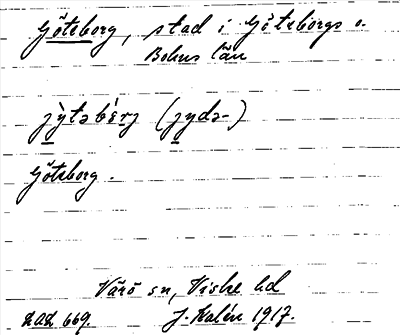 Göteborg, stad i Göteborgs o.
Bohus län
jỳtəbérj (jydə-)
Göteborg.
Värö sn, Viske hd
ZAL 669. J. Kalén 1917.